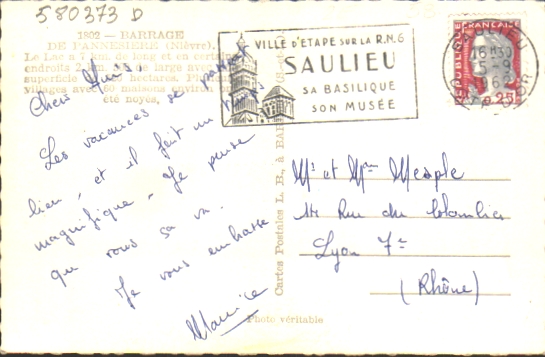 580373 D
1802 — BARRAGE
DE PANNESIERE (Nièvre).
Le Lac a 7 km. de long et en certains
endroits 2 km. de large avec une
superficie de hectares.
villages avec 60 maisons environ
été noyés.
Chers Amis
Les vacances se passent
bien, et il fait un temps
magnifique. Je pense
que vous ça va.
Je vous embrasse
Maurice
VILLE D'ETAPE SUR LA R.N.6
SAULIEU
SA BASILIQUE
SON MUSÉE
SAULIEU
16H30
5-9
CÔTE D'OR
REPUBLIQUE FRANÇAISE
0,25
Cartes Postales L. B., à
Mr et Mme Mesple
Rue du Colombier
Lyon 7e
(Rhône)
Photo véritable